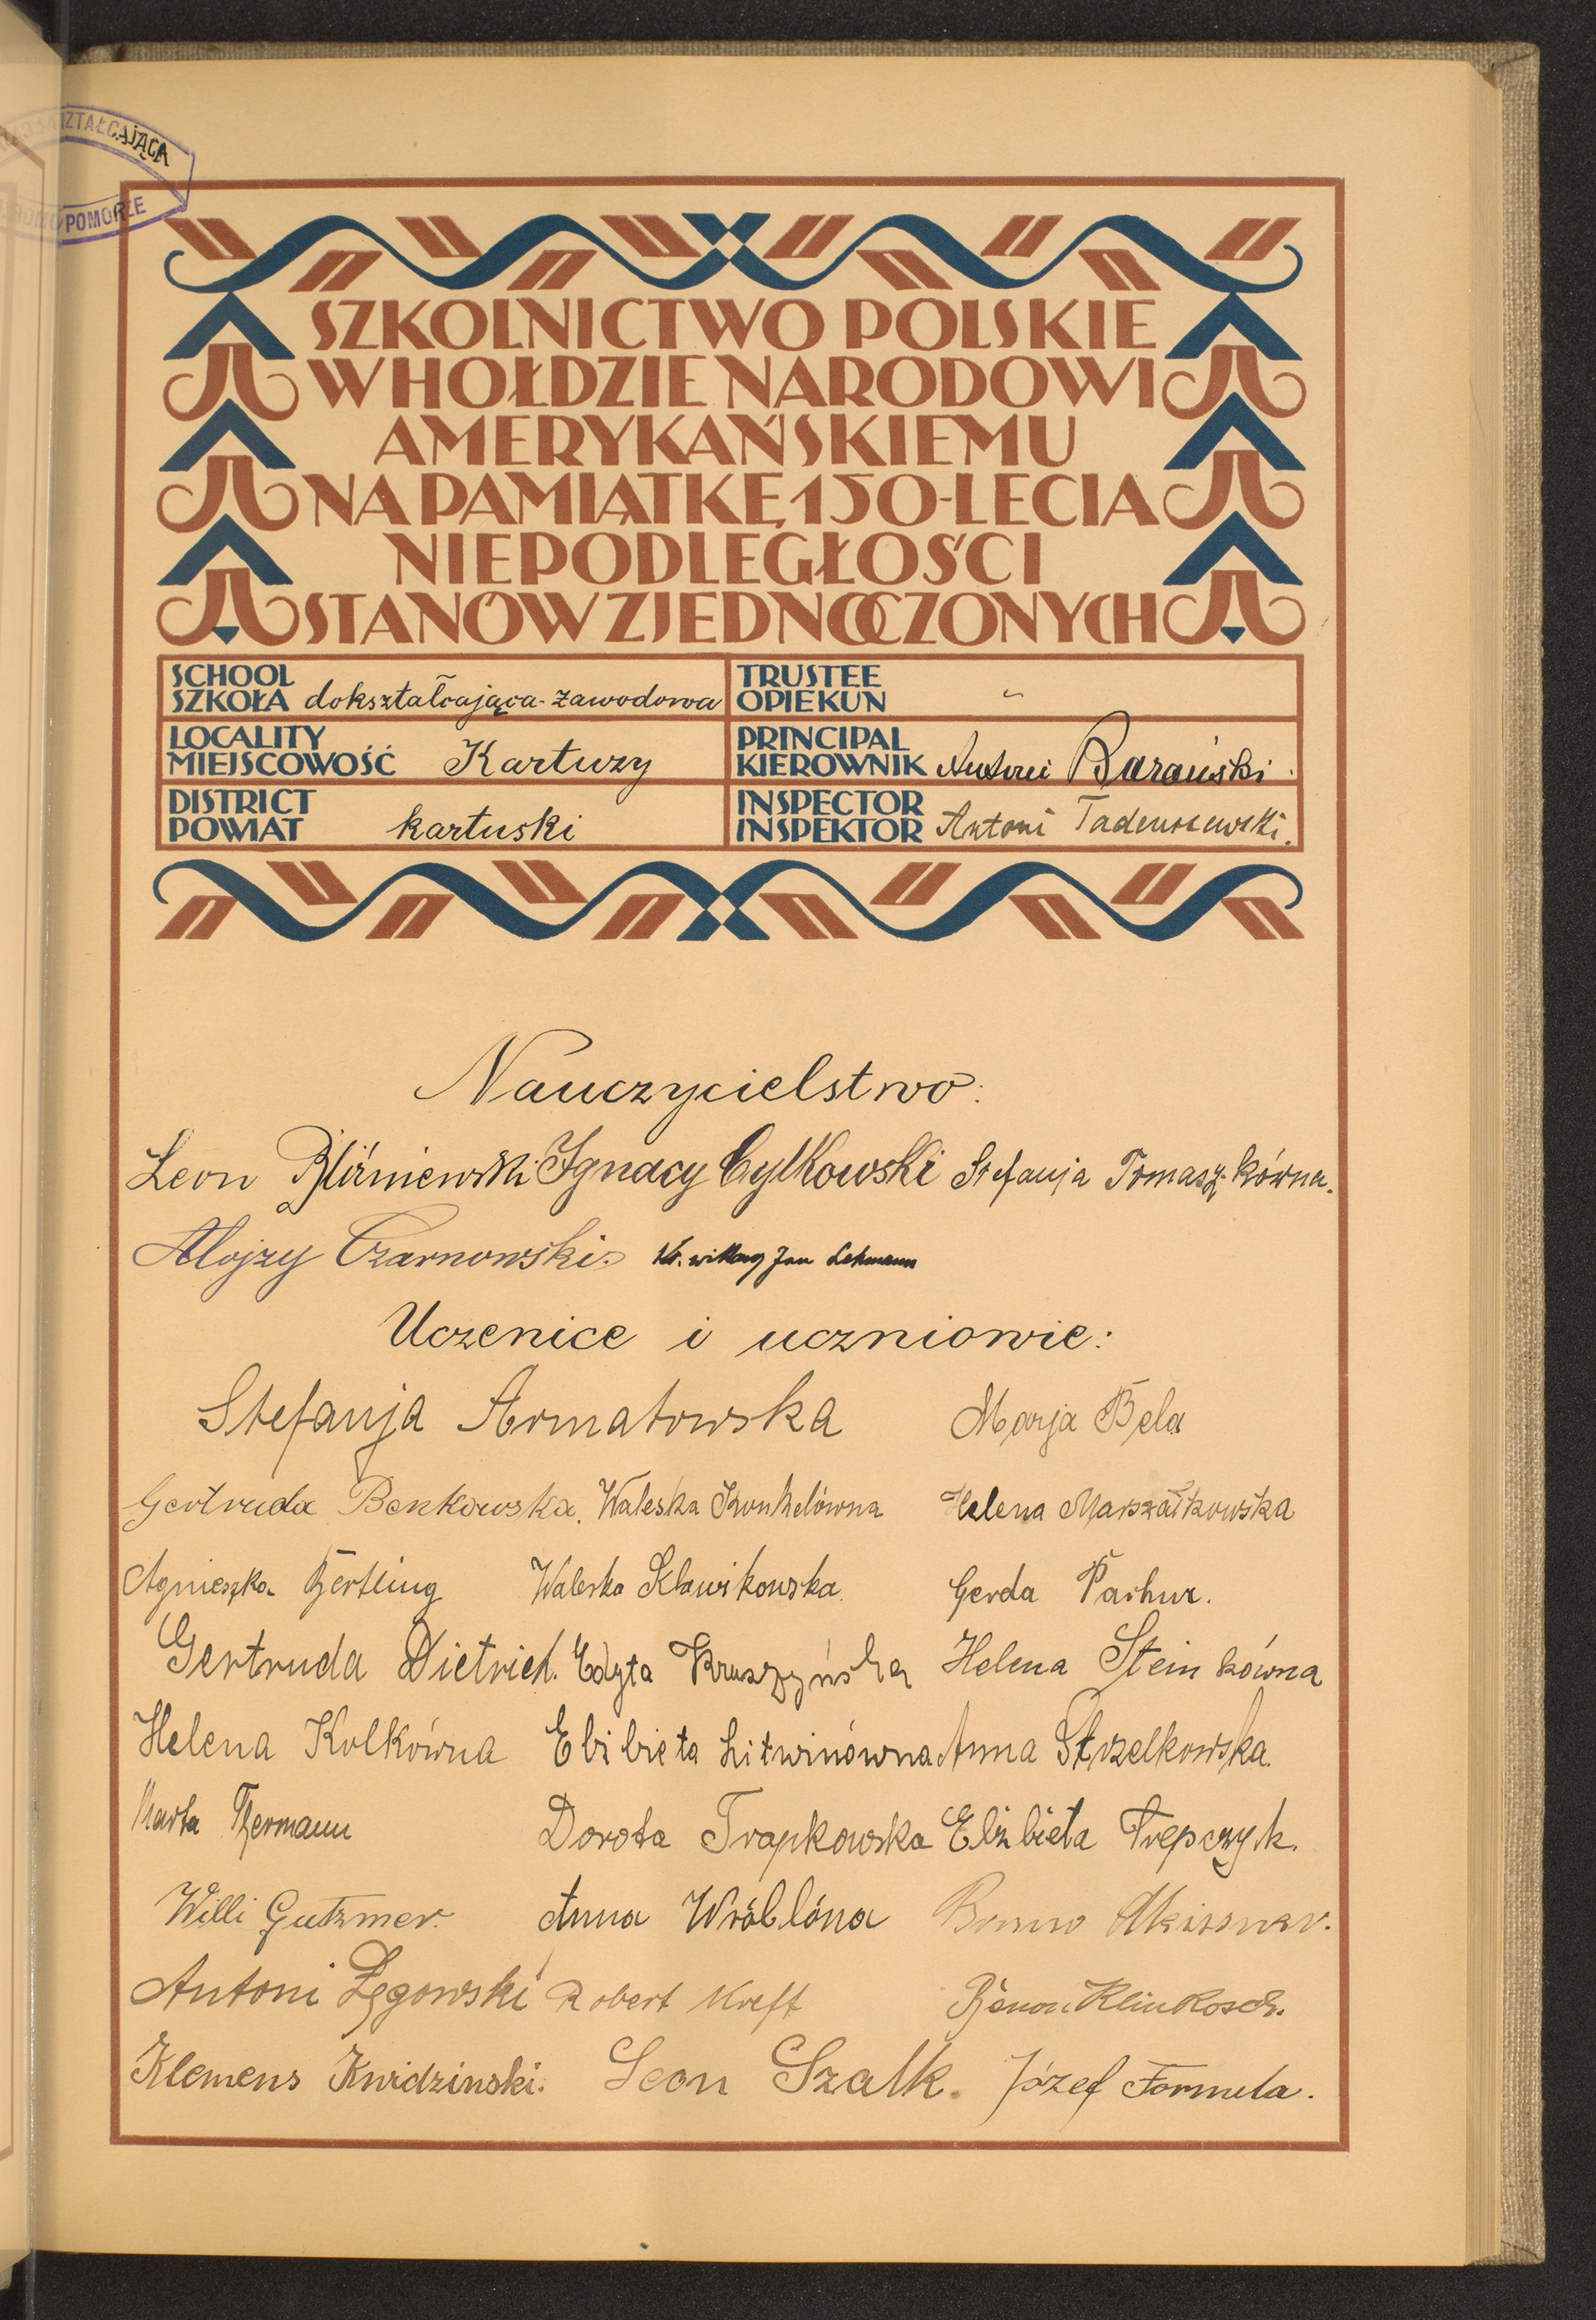 KSZTAŁCAJĄCA
POMORZE
SZKOLNICTWO POLSKIE
W HOŁDZIE NARODOWI
AMERYKAŃSKIEMU
NA PAMIĄTKĘ 150-LECIA
NIEPODLEGŁOŚCI
STANÓW ZJEDNOCZONYCH
SCHOOL
SZKOŁA dokształcająca-zawodowa
TRUSTEE
OPIEKUN -
LOCALITY
MIEJSCOWOŚĆ Kartuzy
PRINCIPAL
KIEROWNIK Antoni Barański.
DISTRICT
POWIAT kartuski
INSPECTOR
INSPEKTOR Antoni Tadeuszewski.
Nauczycielstwo:
Leon Bliźniewski Ignacy Cylkowski Stefanja Tomaszkówna.
Alojzy Czarnowski. Ks. wikary Jan Lehmann
Uczenice i uczniowie:
Stefanja Armatowska Marja Bela
Gertruda Benkowska. Waleska Konkelówna Helena Marszałkowska
Agnieszka Bertling Waleska Klawikowska. Gerda Parhur.
Gertruda Dietrich. Edyta Kruszyńska Helena Steinkówna
Helena Kolkówna Elżbieta Litwinówna Anna Strzelkowska.
Marta Thermann Dorota Trapkowska Elżbieta Trepczyk.
Willi Gutzmer. Anna Wróblóna Bruno Meissner.
Antoni Łęgowski Robert Kreft Benon Klinkosch.
Klemens Kwidzinski. Leon Szalk. Józef Formela.